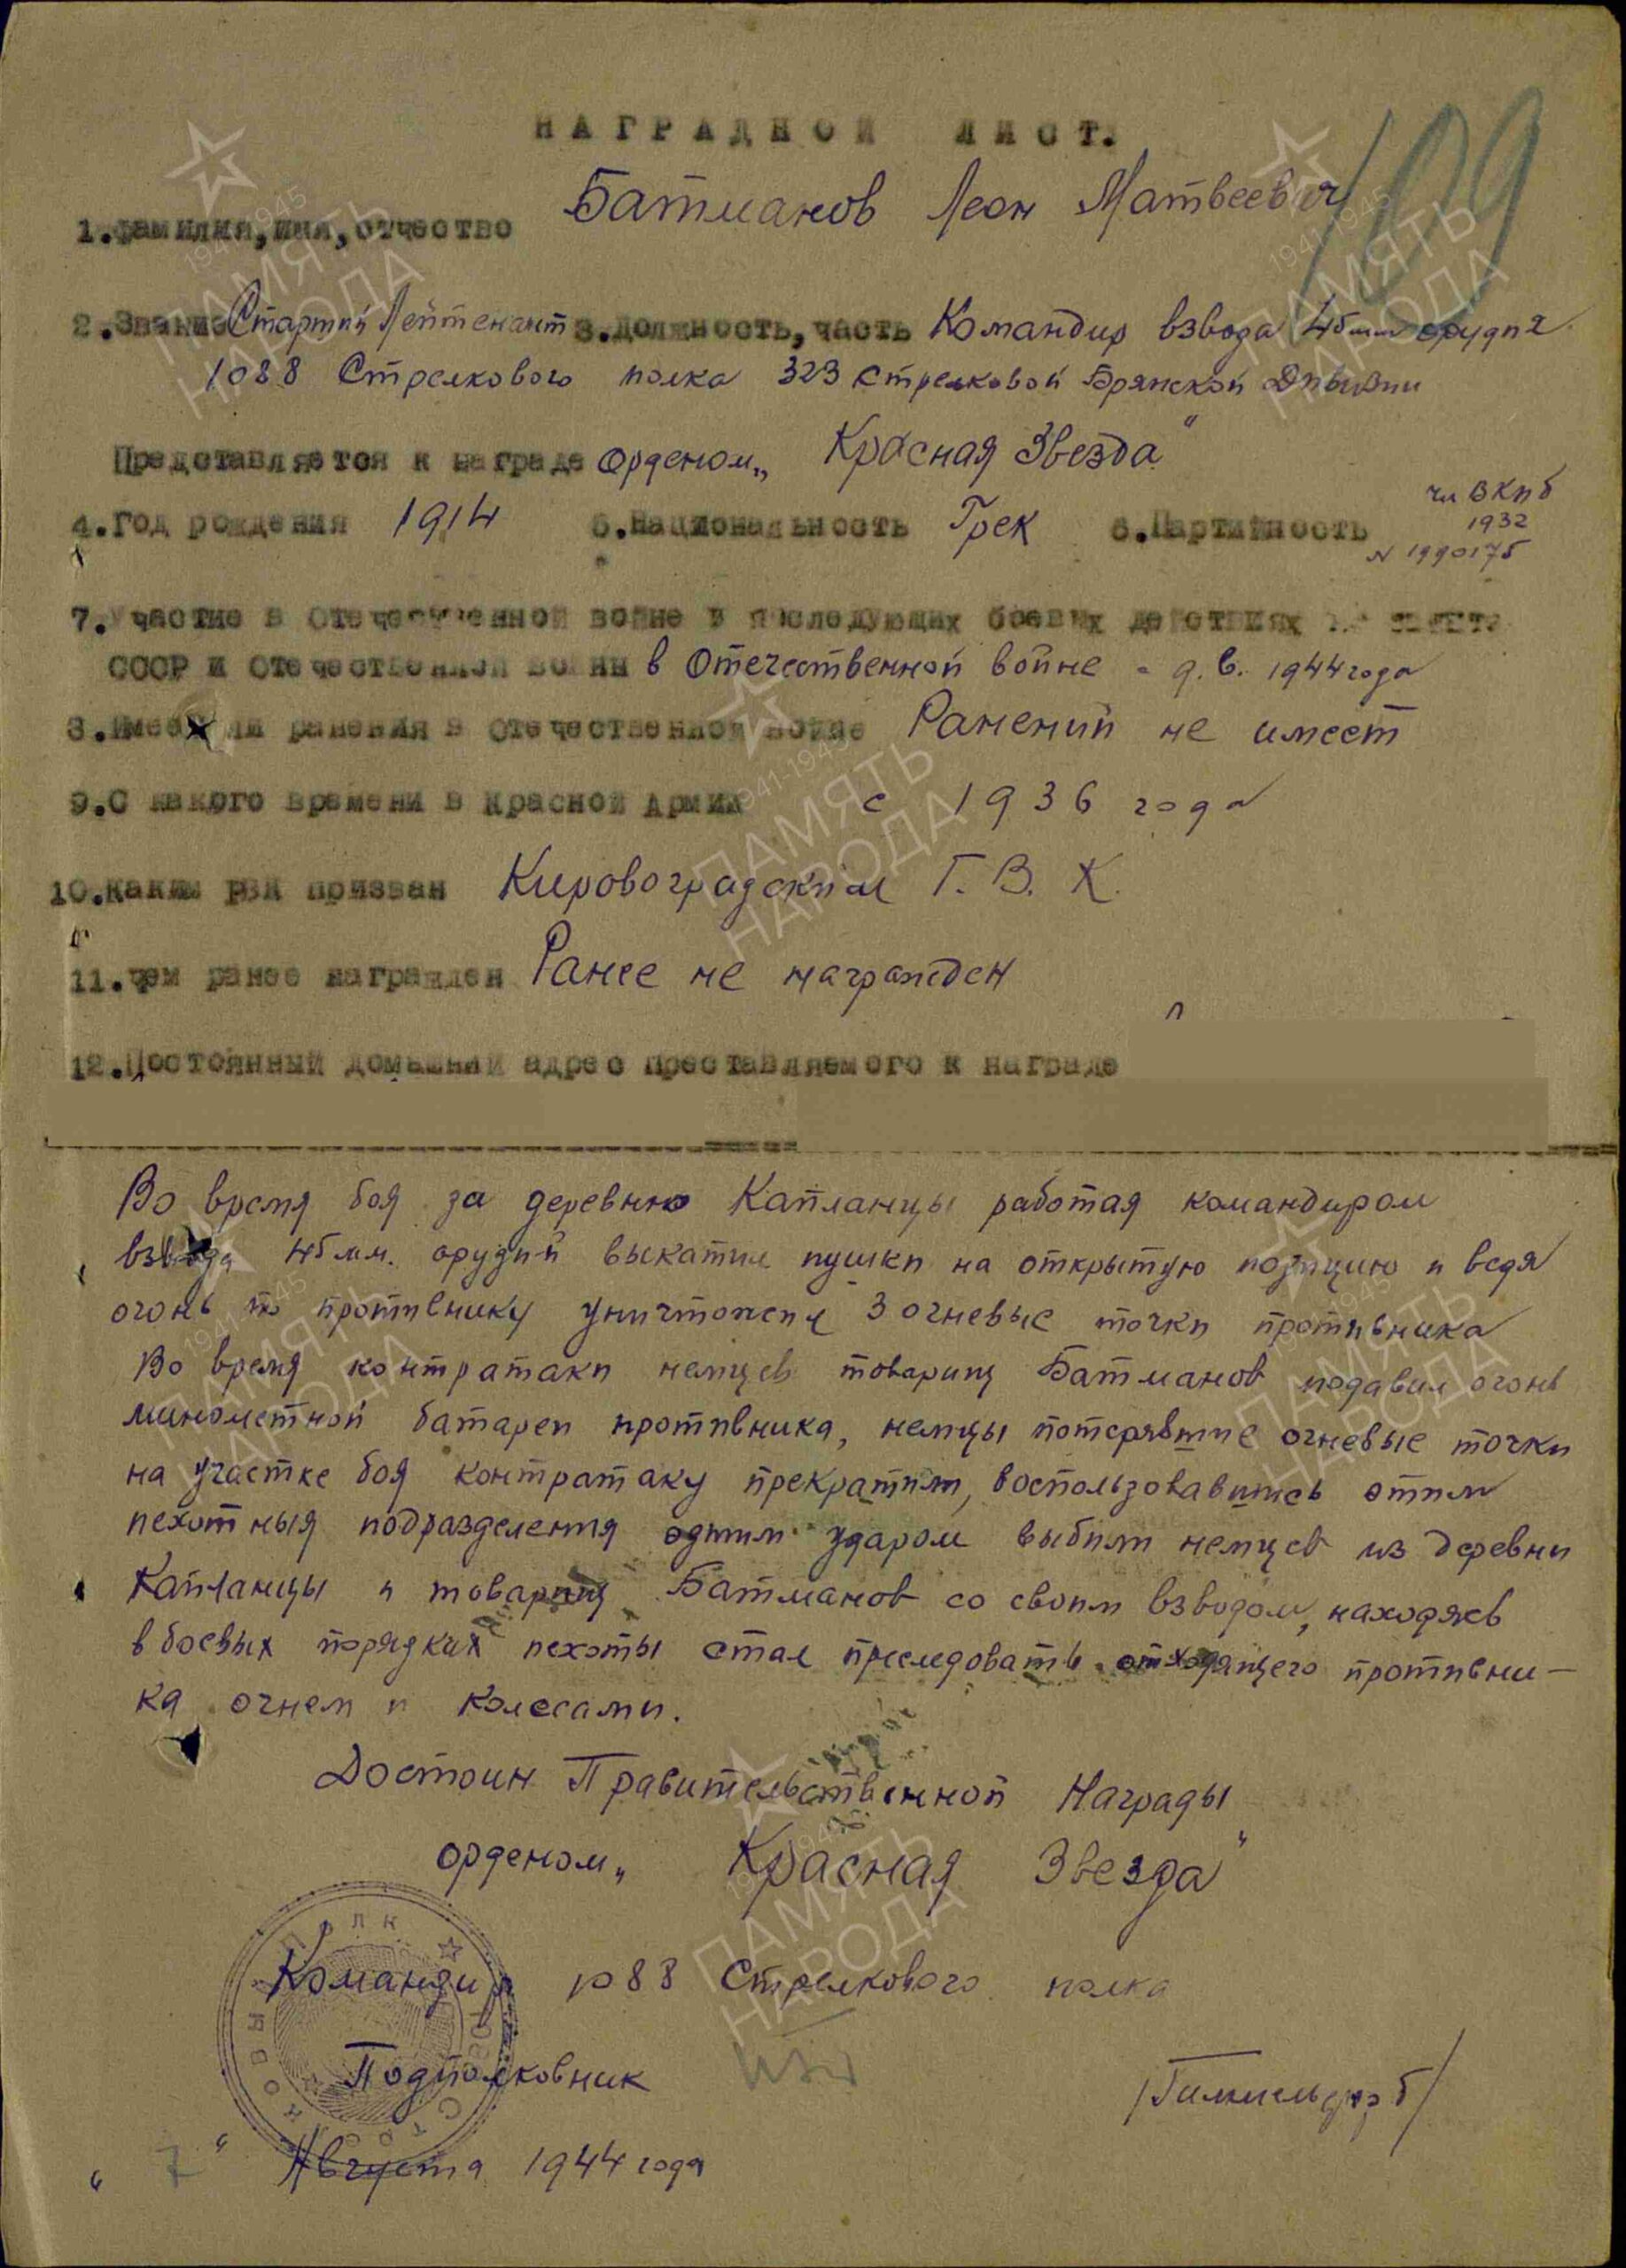 НАГРАДНОЙ ЛИСТ.
199
1.фамилия,имя,отчество Батманов Леон Матвеевич
2.Звание Старший Лейтенант 3.должность,часть Командир взвода 45мм орудия
1088 Стрелкового полка 323 Стрелковой Брянской Дивизии
Представляется к награде Орденом „Красная Звезда"
4.Год рождения 1914 5.Национальность Грек 6.Партийность чл ВКПб
1932
N 1990175
7.Участие в Отечественной войне в последующих боевых действиях по защите
СССР и Отечественной войны в Отечественной войне - 9.6. 1944 года
8.Имеет ли ранения в Отечественной войне Ранений не имеет
9.С какого времени в Красной Армии с 1936 года
10.Каким РВК призван Кировоградским Г.В.К.
11.чем ранее награжден Ранее не награжден
12.Постоянный домашний адрес преставляемого к награде
Во время боя за деревню Капланцы работая командиром
взвода 45мм. орудий выкатил пушки на открытую позицию и ведя
огонь по противнику уничтожил 3 огневые точки противника
Во время контратаки немцев товарищ Батманов подавил огонь
минометной батареи противника, немцы потерявшие огневые точки
на участке боя контратаку прекратили, воспользовавшись этим
пехотныя подразделения одним ударом выбили немцев из деревни
Капланцы и товарищ Батманов со своим взводом, находясь
в боевых порядках пехоты стал преследовать отходящего противни-
ка огнем и колесами.
Достоин Правительственной Награды
орденом „Красная Звезда"
Командир 1088 Стрелкового полка
Подполковник
„7" Августа 1944 года
ПАМЯТЬ НАРОДА
1941-1945